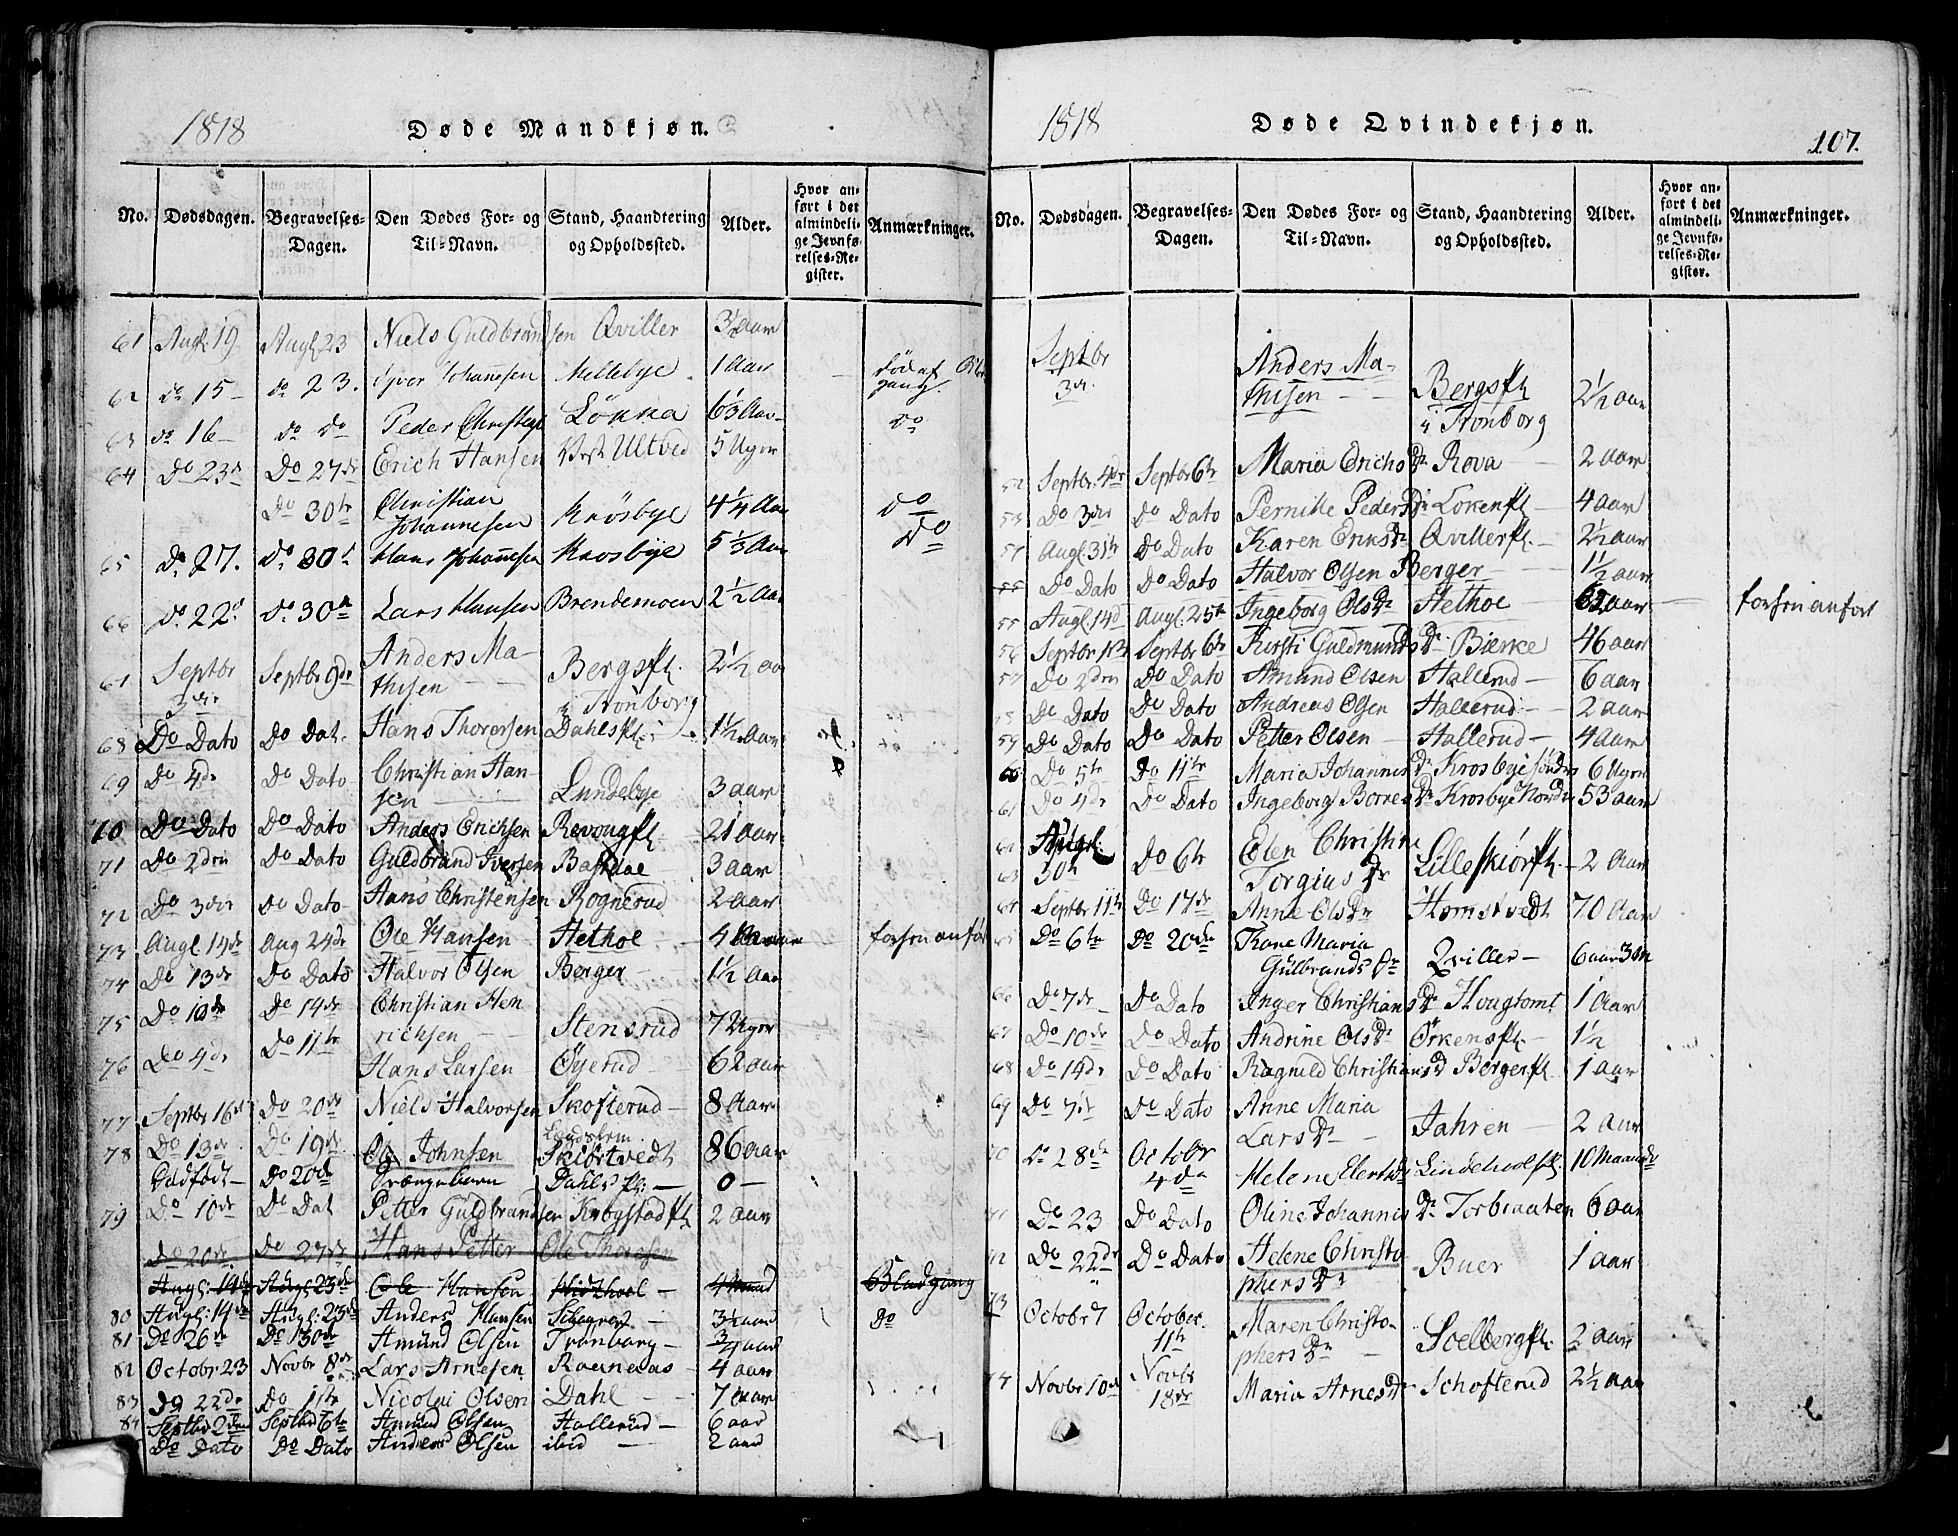 1818 Døde Mandkjøn.
No. Dødsdagen. Begravelses-Dagen. Den Dødes For- og Til-Navn. Stand, Haandtering og Opholdssted. Alder. Hvor anført i det almindelige Jevnførelses-Register. Anmærkninger.
61 Augl. 19. Augl. 23 Niels Guldbrandsen Qviller 3½ aar
62 do 15 do 23. Iver Johannesen Mellebye 1 Aar død af
63 do 16 do do Peder Christens Lökka 6⅓ Aar do
64 Do 23de Do 27de Erich Hansen Vest Ultved 5 Uger
Do 30te Christian Johannesen Krosbye 4¼ Aar do
65 Do 27. Do 30te Hans Johannesen Krosbye 5⅓ Aar Do
66 do 22de do 30te Lars Hansen Brendemoen 2½ Aar
67 Septbr 3die Septbr 9de Anders Mathisen Bergspl. i Tronborg 2½ aar
68 Do Dato Do Dat. Hans Thorersen Dahlspl. 1½ Aar
69 Do 4de Do Dato Christian Hansen Lundebye 3 aar
70 Do Dato Do Dato Anders Erichsen Revougpl. 21 aar
71 Do 2den Do Dato Guldbrand Iversen Bastdoe 3 aar
72 Do 3die Do Dato Hans Christensen Rognerud 2 aar
73 Augl. 14de Aug 24de Ole Hansen Hethoe 4 forhen anført
74 Do 13de Do Dato Halvor Olsen Berger 1½ Aar
75 Do 10de Do 14de Christian Henrichsen Stensrud 7 Uger
76 Do 4de Do 11te Hans Larsen Öyerud 62 aar
77 Septbr 16de Do 20de Niels Halvorsen Skofterud 8 Aar
78 Do 13de Do 19de Ole Johnsen Skibstvedt 86 aar
Dødfødt Do 20de Drængebarn Dahls Pl. 0
79 Do 10de Do Dat Petter Guldbrandsen Krogstadpl. 2 aar
Do 20de Do 27de Hans Petter Ole Thoresen
Augl: 14de Augl: 23de Ole Hansen 4 Blodgang
80 Augl: 14de Augl: 23de Anders Hansen 3½ aar do
81 Do 26de Do 30de Amund Olsen Tronborg ¾ aar
82 Octobr 23 Novbr 8de Lars Arnesen Roenaas 4 aar
83 do 22de Do 1te Nicolai Olsen Dahl 7 aar
84 Septbr 2den Septbr 6te Amund Olsen Hallerud 6 aar
Do Dato Do Dato Anders Olsen ibid 2 aar
1818 Døde Qvindekjøn. 107.
No. Dødsdagen. Begravelses-Dagen. Den Dødes For- og Til-Navn. Stand, Haandtering og Opholdssted. Alder. Hvor anført i det almindelige Jevnførelses-Register. Anmærkninger.
Septbr 3die Anders Mathisen Bergspl. i Tronborg 2½ aar
52 Septbr. 4de Septbr 6te Maria Erichs Dr Rova 2 aar
53 Do 3die Do Dato Pernille Peders Dr Lökenpl 4 aar
54 Augl. 31te Do Dato Karen Erichs Dr Qvillerpl. 2½ aar
55 Do Dato Do Dato Halvor Olsen Berger 1½ aar
55 Augl. 14de Augl. 25te Ingeborg Ols Dr Hethoe 62 aar forhen anført
56 Septbr 1ste Septbr 6te Kirsti Guldmunds Dr Bierke 46 aar
57 Do 2den Do Dato Amund Olsen Hallerud 6 aar
58 Do Dato Do Dato Andreas Olsen Hallerud 2 aar
59 Do Dato Do Dato Petter Olsen Hallerud 4 Aar
60 Do 5te Do 11te Maria Johannis Dr Krosbye söndre 6 Uger
61 Do 4de Do Dato Ingeborg Borres Dr Krosbye Nordre 53 aar
62 Augl. 30te Do 6te Olen Christine
63 Torgius Dr Lilleskiörpl. 2 Aar
64 Septbr 11te Do 17de Anne Ols Dr Homstvedt 70 Aar
65 Do 6te Do 20de Thone Maria Gulbrands Dr Qviller 6 aar 3 M
66 Do 7de Do Dato Inger Christians Dr Hougtomt 1 Aar
67 Do 10de Do Dato Andrine Ols Dr Örkenspl. 1½
68 Do 14de Do Dato Ragnild Christians D Bergerpl. 1 aar
69 Do 7de Do Dato Anne Maria Lars Dr Jahren 2 aar
70 Do 28de October 4de Helene Ellerts Dr Lindeholpl. 10 Maaneder
71 Do 23 Do Dato Oline Johannis Dr Torbraaten 6 aar
72 Do 22de Do Dato Helene Christophers Dr Buer 1 aar
73 Octobr 7 October 11te Maren Christophers Dr Soelbergpl. 2 aar
74 Novbr 10de Novbr 18de Maria Arnes Dr Schofterud 2½ aar